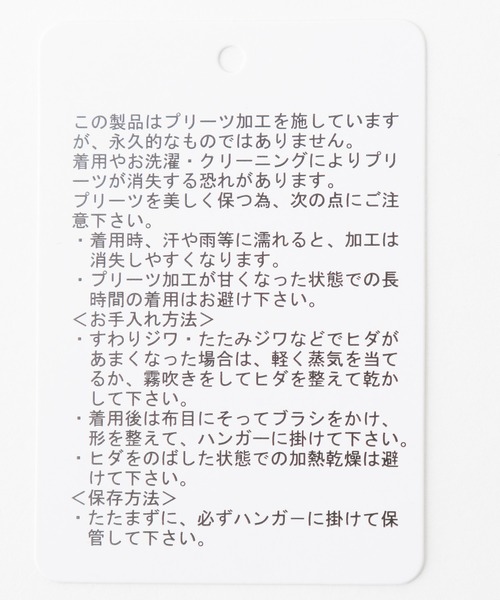 この製品はプリーツ加工を施しています
が、永久的なものではありません。
着用やお洗濯・クリーニングによりプリ
ーツが消失する恐れがあります。
プリーツを美しく保つ為、次の点にご注
意下さい。
・着用時、汗や雨等に濡れると、加工は
消失しやすくなります。
・プリーツ加工が甘くなった状態での長
時間の着用はお避け下さい。
＜お手入れ方法＞
・すわりジワ・たたみジワなどでヒダが
あまくなった場合は、軽く蒸気を当て
るか、霧吹きをしてヒダを整えて乾か
して下さい。
・着用後は布目にそってブラシをかけ、
形を整えて、ハンガーに掛けて下さい。
・ヒダをのばした状態での加熱乾燥は避
けて下さい。
＜保存方法＞
・たたまずに、必ずハンガーに掛けて保
管して下さい。